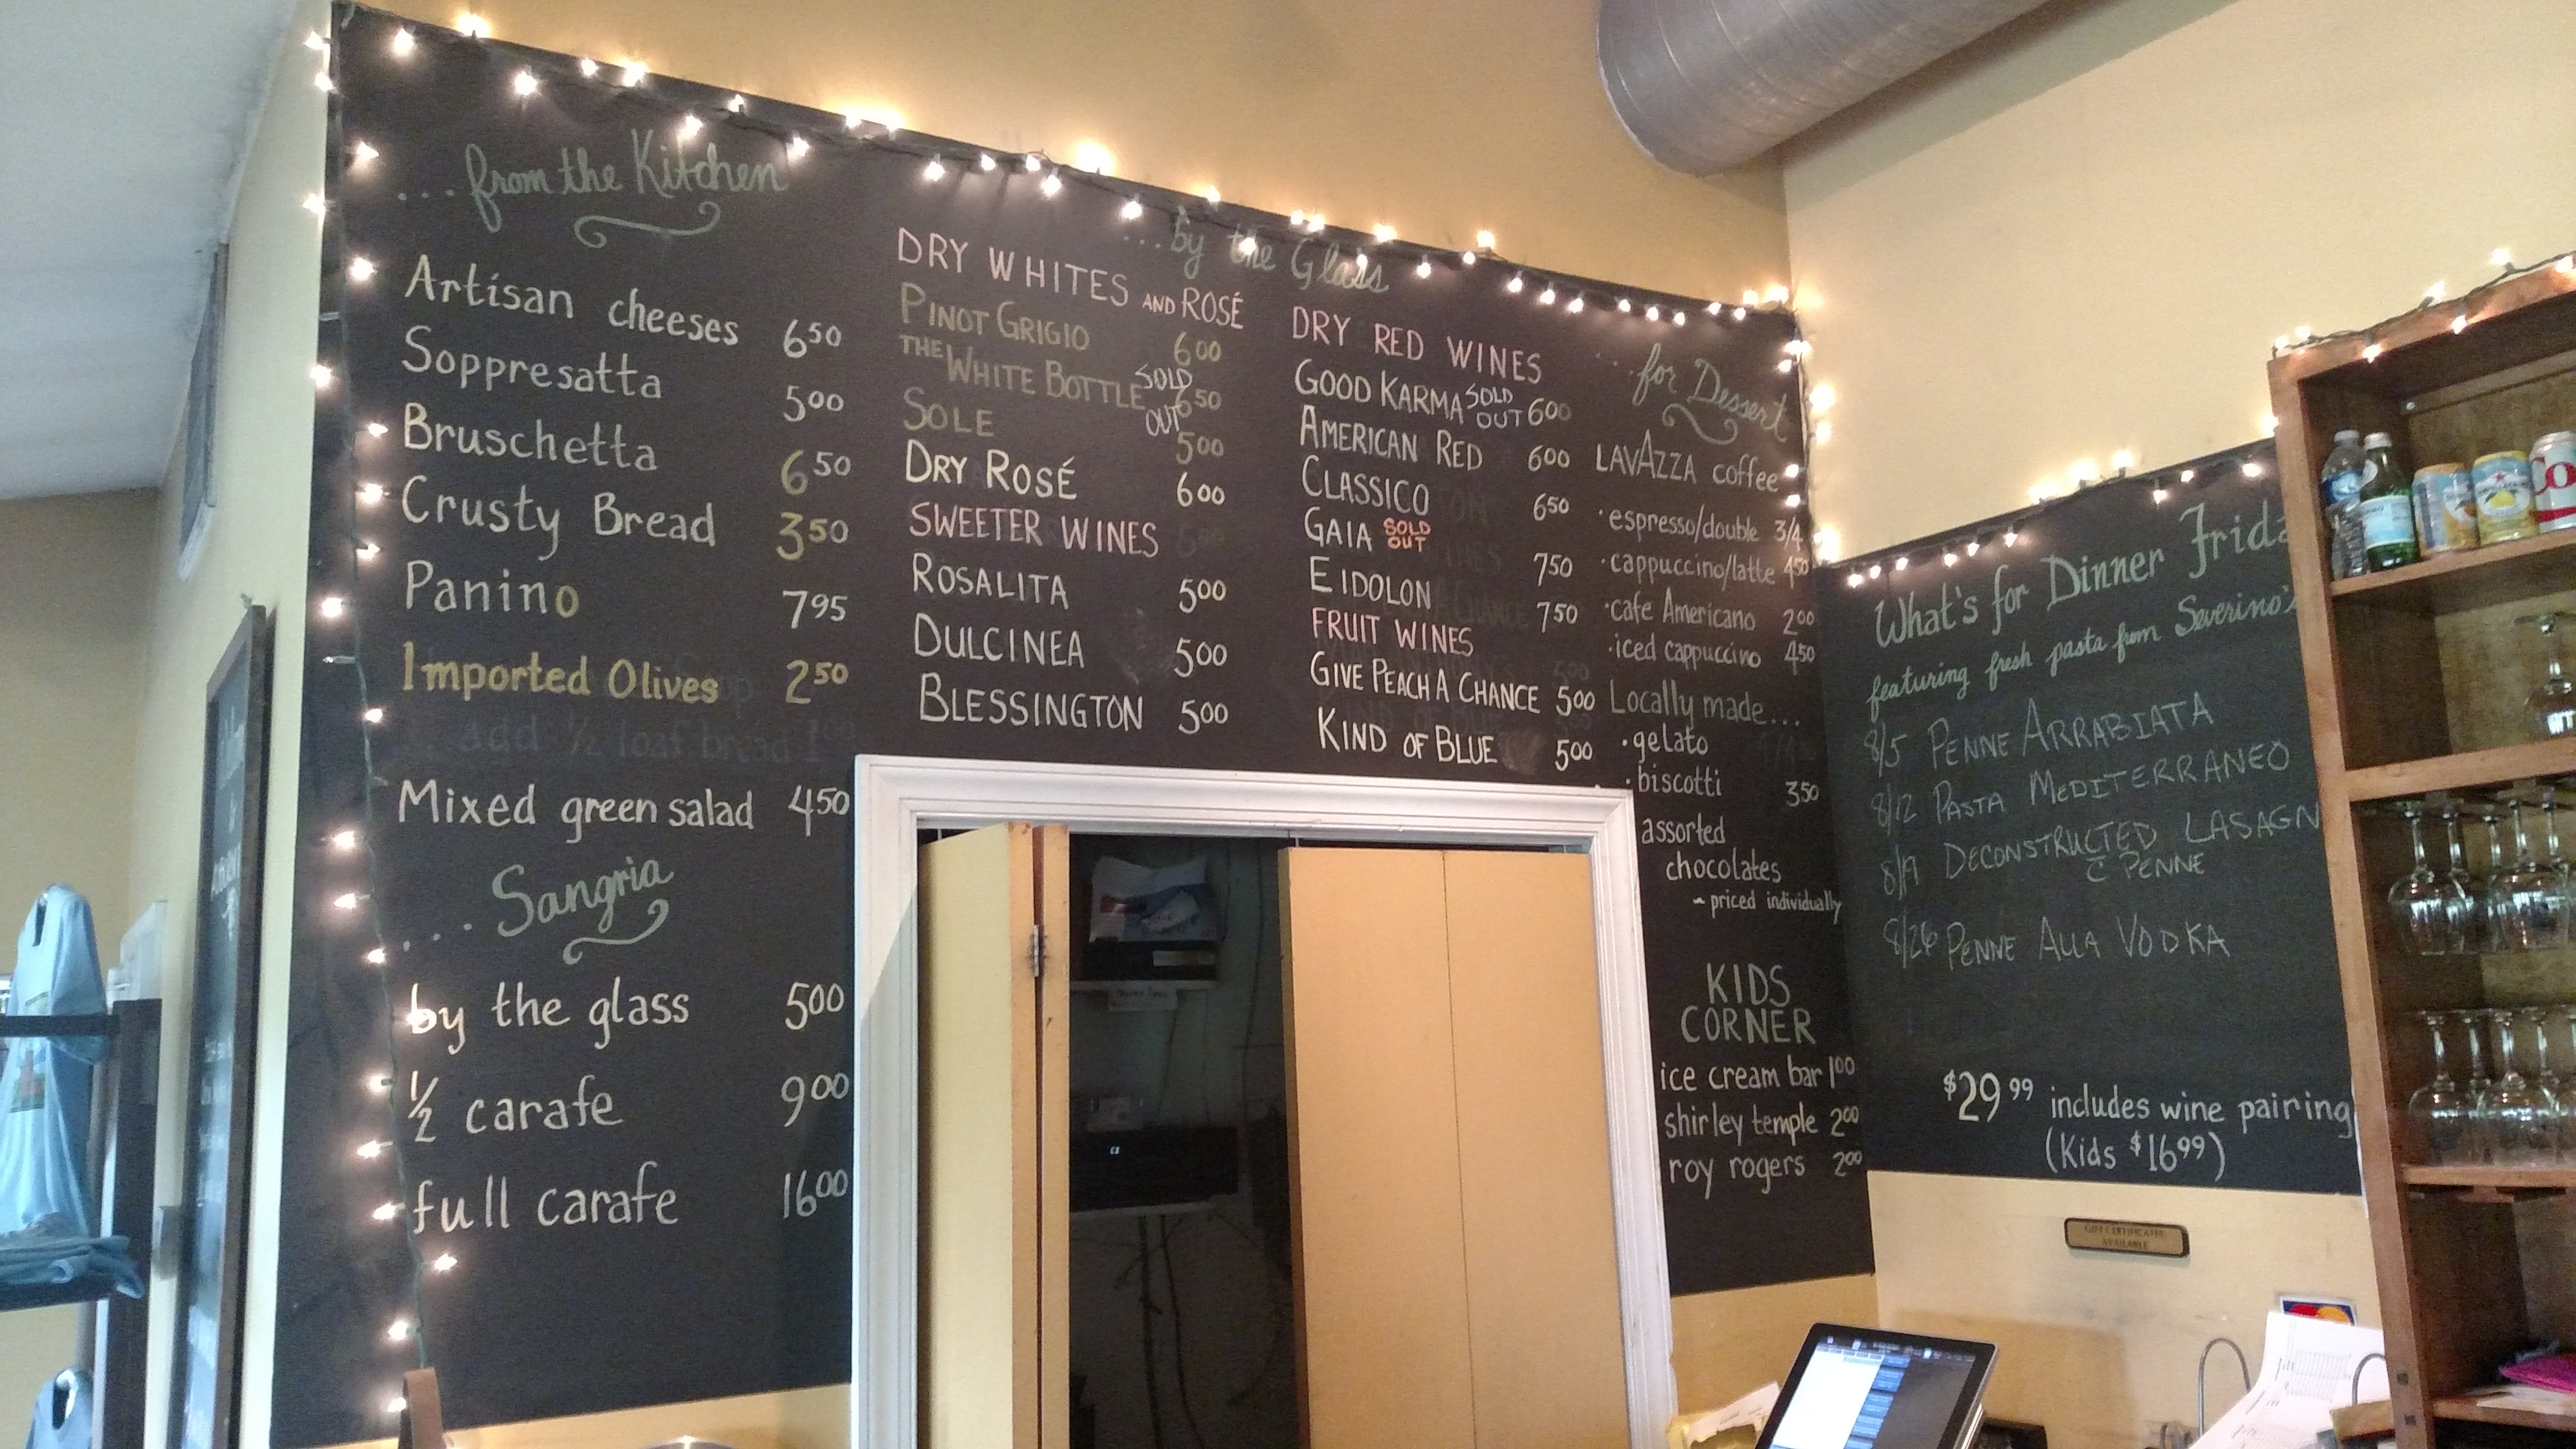 ....from the Kitchen
Artisan cheeses 6 50
Soppresatta 5 00
Bruschetta 6 50
Crusty Bread 3 50
Panino 7 95
Imported Olives 2 50
add ½ loaf bread 1 00
Mixed green salad 4 50
...Sangria
by the glass 5 00
½ carafe 9 00
full carafe 16 00
...by the Glass
DRY WHITES AND ROSÉ
PINOT GRIGIO 6 00
THE WHITE BOTTLE SOLD OUT 6 50
SOLE 5 00
DRY ROSÉ 6 00
SWEETER WINES
ROSALITA 5 00
DULCINEA 5 00
BLESSINGTON 5 00
DRY RED WINES
GOOD KARMA SOLD OUT 6 00
AMERICAN RED 6 00
CLASSICO 6 50
GAIA SOLD OUT 7 50
EIDOLON 7 50
FRUIT WINES
GIVE PEACH A CHANCE 5 00
KIND OF BLUE 5 00
...for Dessert
LAVAZZA coffee
·espresso/double 3/4
·cappuccino/latte 4 50
·cafe Americano 2 00
·iced cappuccino 4 50
Locally made...
·gelato
·biscotti 3 50
assorted
chocolates
~ priced individually
KIDS
CORNER
ice cream bar 1 00
shirley temple 2 00
roy rogers 2 00
What's for Dinner Frida
featuring fresh pasta from Severino's
8/5 PENNE ARRABIATA
8/12 PASTA MEDITERRANEO
8/19 DECONSTRUCTED LASAGN
c̄ PENNE
8/26 PENNE ALLA VODKA
$29 99 includes wine pairing
(Kids $16 99)
GIFT CERTIFICATES
AVAILABLE